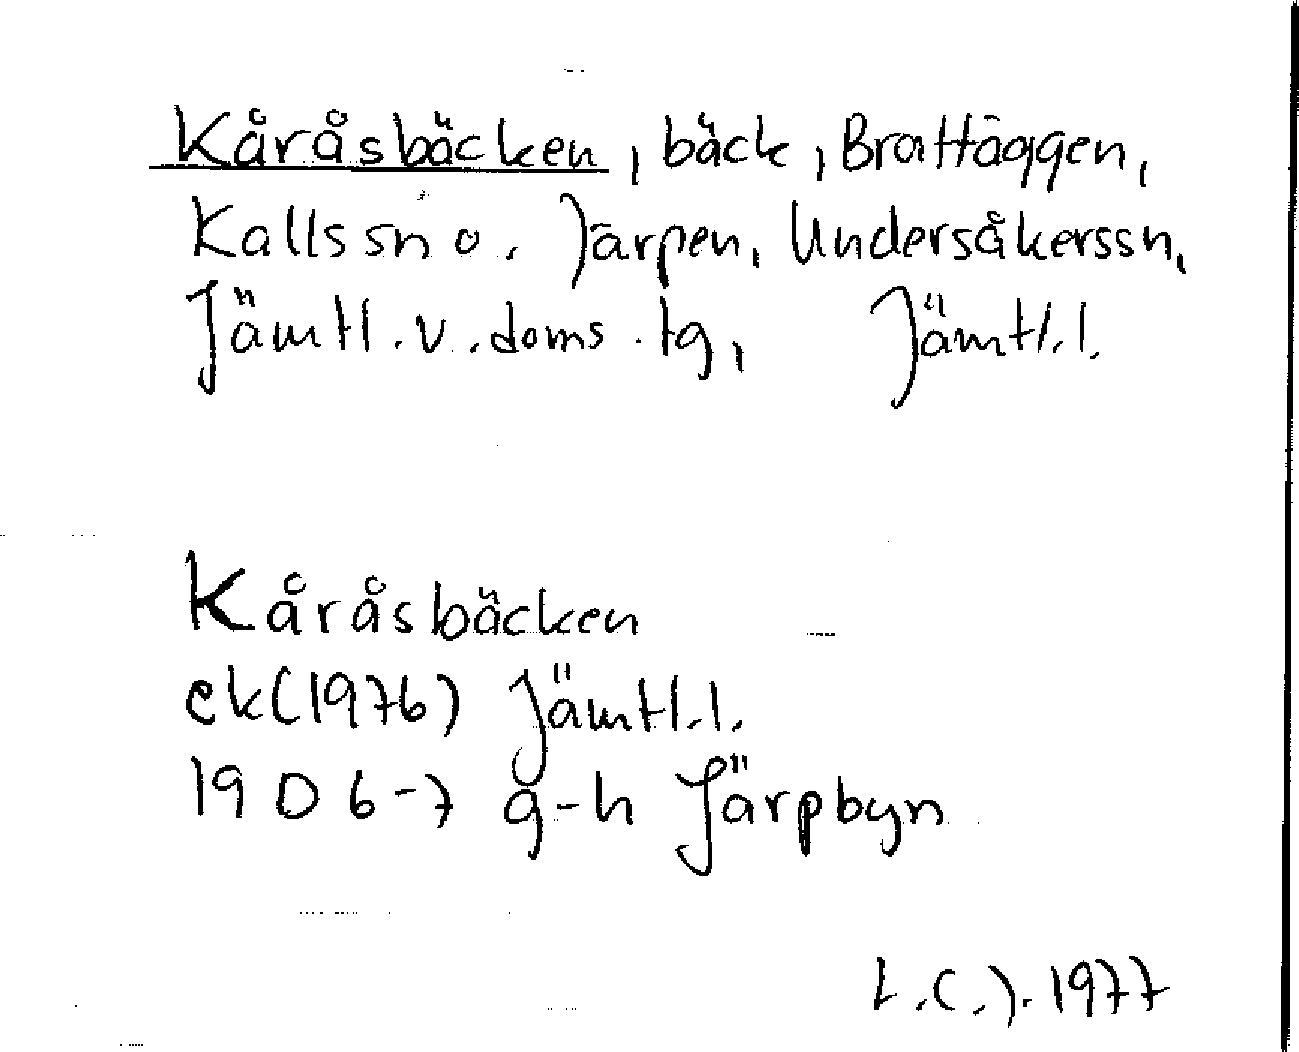 Kåråsbäcken, bäck, Brattäggen,
Kalls sn o. Järpen, Undersåkers sn,
Jämtl. v. doms. tg, Jämtl. l.
Kåråsbäcken
ek (1976) Jämtl. l.
19D 6-7 g-h Järpbyn
L.C.J. 1977